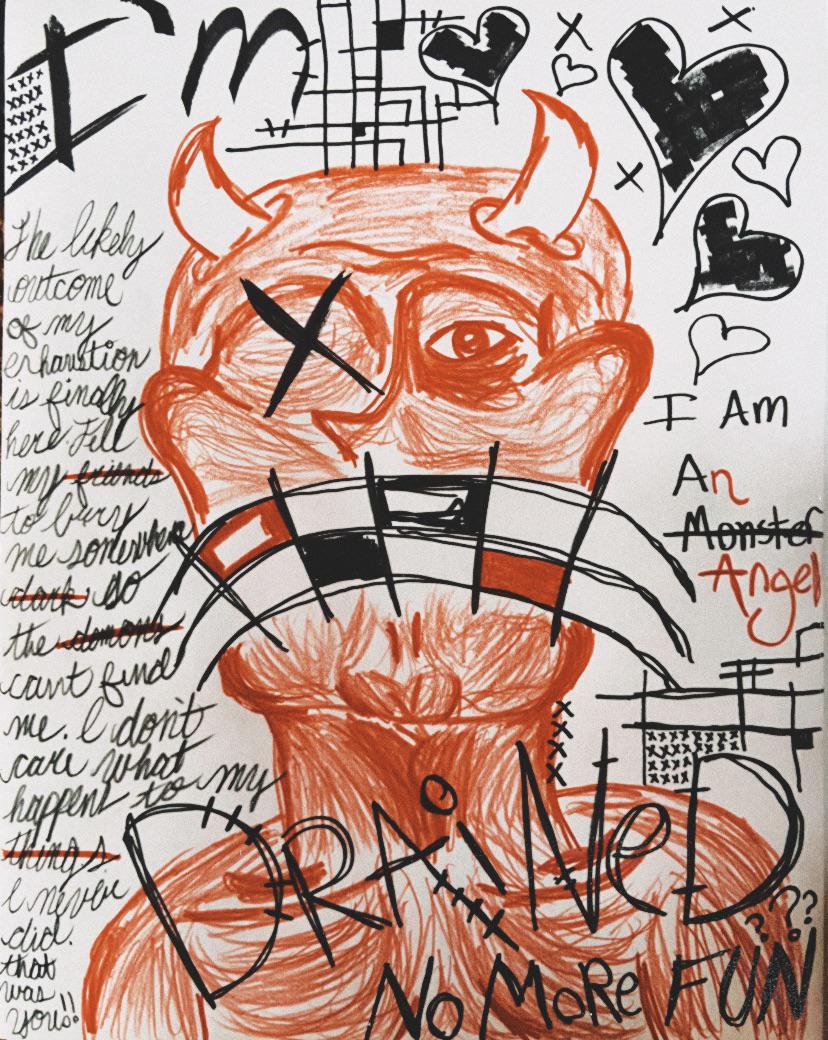 I'm
The likely
outcome
of my
exhaustion
is finally
here. Tell
my friends
to bury
me somewhere
dark so
the demons
can't find
me. I don't
care what
happens to my
things.
I never
did.
that
was
yours!!
I AM
An
Monster
Angel
DRAiNeD
NO MoRe FUN ???